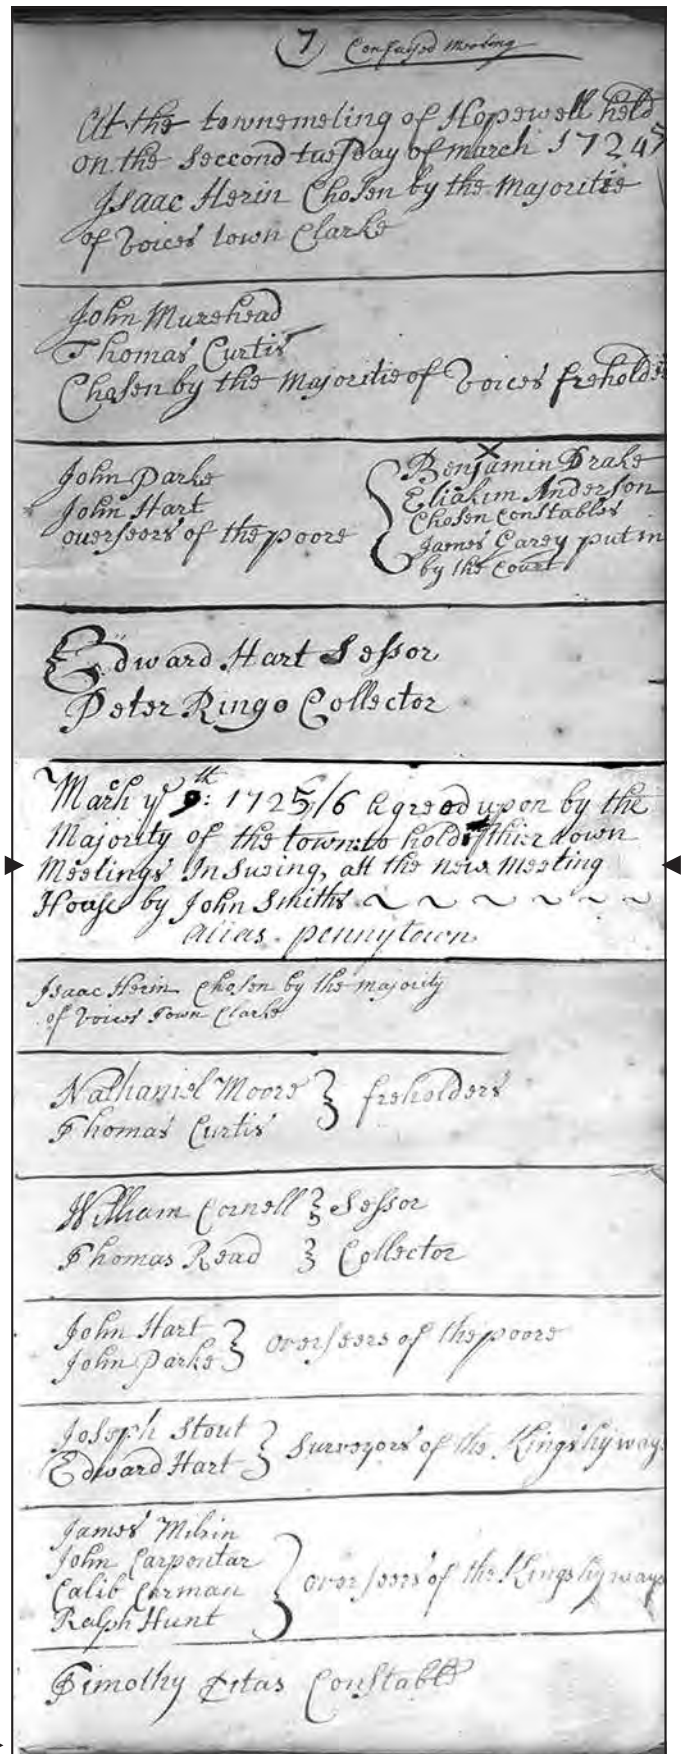 7
At the townemeting of Hopewell held
on the Seccond tuesday of march 1724/5
Isaac Herin Chosen by the Majoritie
of Voices town Clarke
John Murehead
Thomas Curtis
Chosen by the Majoritie of Voices freholders
John Parke
John Hart
overseers of the poore
Benjamin Drake
Eliakim Anderson
Chosen Constables
James Carey put in
by the Court
Edward Hart Sessor
Peter Ringo Collector
March ye 9th: 1725/6 Agreed upon by the
Majority of the town to hold thier town
Meetings Insueing, att the new Meeting
House by John Smiths
alias pennytown
Isaac Herin Chosen by the majority
of Voices Town Clarke
Nathaniel Moore freholders
Thomas Curtis
William Cornell Sessor
Thomas Read Collector
John Hart overseers of the poore
John Parke
Joseph Stout Surveyors of the Kings hyways
Edward Hart
James Melvin
John Carpontar
Calib Carman overseers of the Kings hyways
Ralph Hunt
Timothy Titas Constable